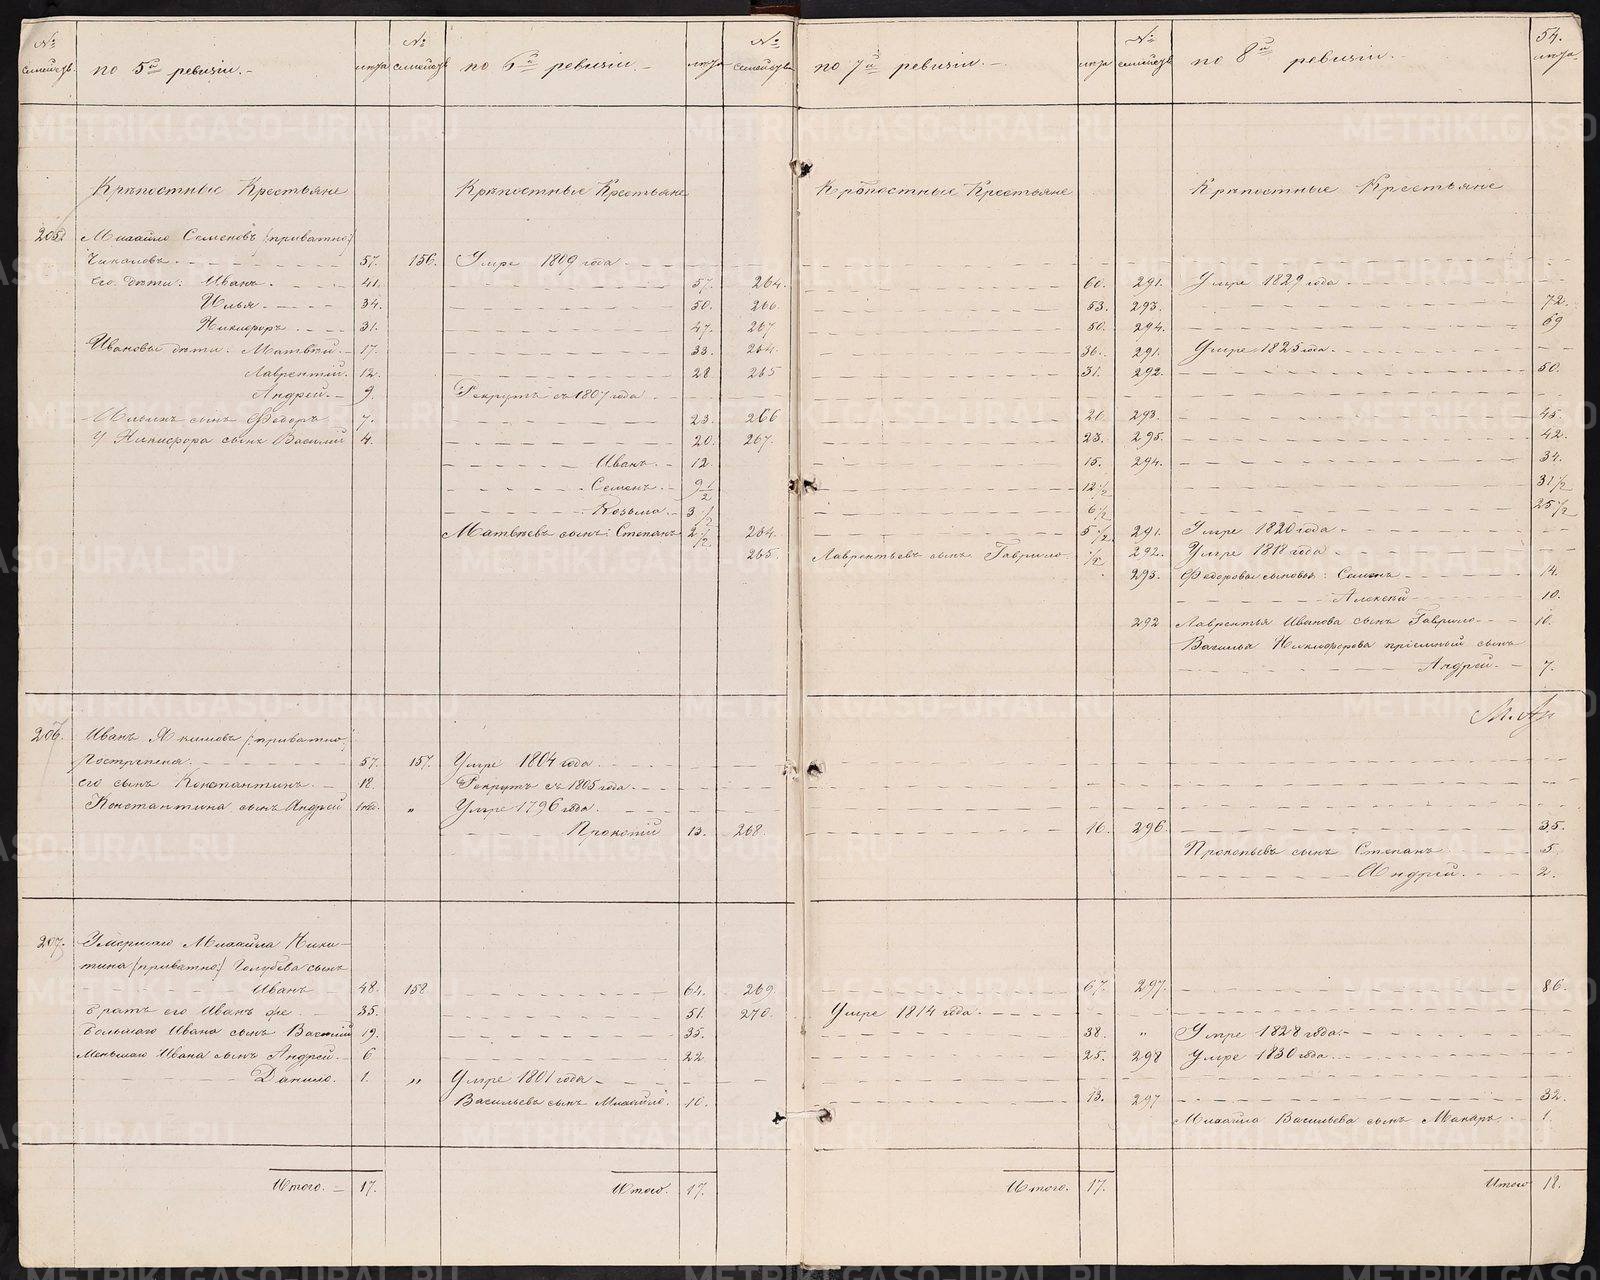 № семействъ. по 5й ревизіи. – лѣта № семействъ по 6й ревизіи. – лѣта № семействъ по 7й ревизіи. – лѣта № семействъ по 8й ревизіи. – 54. лѣта
Крѣпостные Крестьяне Крѣпостные Крестьяне Крѣпостные Крестьяне Крѣпостные Крестьяне
205. Михайло Семеновъ (приватно)
57. 156. Умре 1809 года
его дѣти: Иванъ. 41. 57. 264. 60. 291. Умре 1829 года
Илья. 34. 50. 266 53. 293. 72.
Никифоръ. 31. 47. 267 50. 294. 69
Ивановы дѣти: Матвѣй. 17. 33. 264. 36. 291. Умре 1825 года.
Лаврентій. 12. 28 265 31. 292. 50.
Андрей. 9. Рекрутъ съ 1807 года
Ильинъ сынъ Ѳедоръ 7. 23. 266 26. 293. 45.
У Никифора сынъ Василій 4. 20. 267. 23. 295. 42.
Иванъ. 12. 15. 294. 34.
Семенъ. 9 1/2 12 1/2 31 1/2
Козьма. 3 1/2 6 1/2 25 1/2
Матвѣевъ сынъ: Степанъ 2 1/2 264. 5 1/2 291. Умре 1820 года
265. Лаврентьевъ сынъ Гаврило 1/2 292. Умре 1818 года
293. Ѳедоровы сыновья: Семенъ 14.
Алексѣй 10.
292 Лаврентья Иванова сынъ Гаврило 10.
Василья Никифорова пріемный сынъ
Андрей. 7.
206. Иванъ Якимовъ (приватно)
57. 157. Умре 1804 года
его сынъ Константинъ. 18. Рекрутъ съ 1805 года.
Константина сынъ Андрей „ Умре 1796 года.
Прокопій 13. 268. 16. 296. 35.
Прокопьевъ сынъ Степанъ 5.
Андрей. 2.
207. Умершаго Михайла Ники-
тина (приватно) Голубева сынъ
Иванъ 48. 158. 64. 269. 67. 297. 86.
Братъ его Иванъ же. 35. 51. 270. Умре 1814 года.
Большаго Ивана сынъ Василій 19. 35. 38. „ Умре 1828 года.
Меньшаго Ивана сынъ Андрей. 6 22 25. 298 Умре 1830 года.
Данило. 1. „ Умре 1801 года
Васильевъ сынъ Михайло. 10. 13. 297 32.
Михайла Васильева сынъ Макаръ. 1.
Итого. 17. Итого. 17. Итого. 17. Итого 18.
METRIKI.GASO-URAL.RU